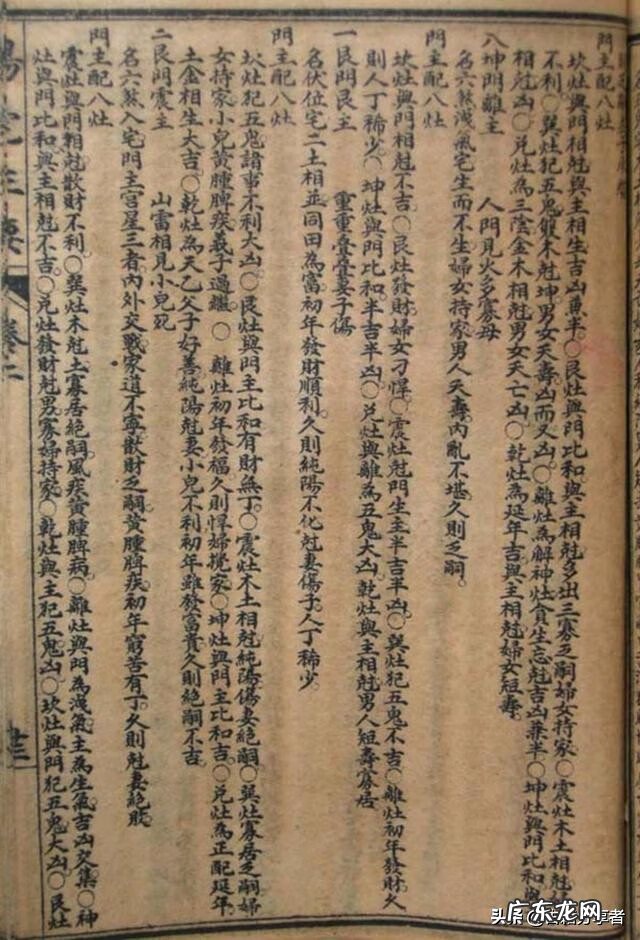 門主配八灶
坎灶與門相尅與主相生吉凶兼半〇艮灶與門比和與主相尅多出三寡乏嗣婦女持家〇震灶木土相尅
不利〇巽灶犯五鬼雙木尅坤男女夭壽凶而又凶〇離灶為解神灶貪生忘尅吉凶兼半〇坤灶與門比和與
相尅凶〇兌灶為三陰金木相尅男女夭亡凶〇乾灶為延年吉與主相尅婦女短壽
八坤門離主　人門見火多寡母
名六煞洩氣宅生而不生婦女持家男人夭壽內亂不堪久則乏嗣
門主配八灶
坎灶與門相尅不吉〇艮灶發財婦女刁悍〇震灶尅門生主半吉半凶〇巽灶犯五鬼不吉〇離灶初年發財久
則人丁稀少〇坤灶與門比和半吉半凶〇兌灶與離為五鬼大凶乾灶與主相尅男人短壽寡居
一艮門艮主　重重叠叠妻子傷
名伏位宅二土相並同田為富初年發財順利久則純陽不化尅妻傷子人丁稀少
門主配八灶
坎灶犯五鬼諸事不利大凶〇艮灶與門主比和有財無丁〇震灶木土相尅純陽傷妻絕嗣〇巽灶寡居乏嗣婦
女持家小兒黃腫脾疾義子過繼〇離灶初年發福久則悍婦攪家〇坤灶與門主比和吉〇兌灶為正配延年
土金相生大吉〇乾灶為天乙父子好善純陽尅妻小兒不利初年雖發富貴久則絕嗣不吉
二艮門震主　山雷相見小兒死
名六煞入宅門主宮星三者內外交戰家道不寧散財乏嗣黃腫脾疾初年窮苦有丁久則尅妻絕
門主配八灶
震灶與門相尅散財不利〇巽灶木尅土寡居絕嗣風疾黃腫脾病〇離灶與門為洩氣主為生氣吉凶交集〇坤
灶與門比和與主相尅不吉〇兌灶發財尅男寡婦持家〇乾灶與主犯五鬼凶〇坎灶與門犯五鬼大凶〇艮灶
卷二
廿三
头条
广东龙网